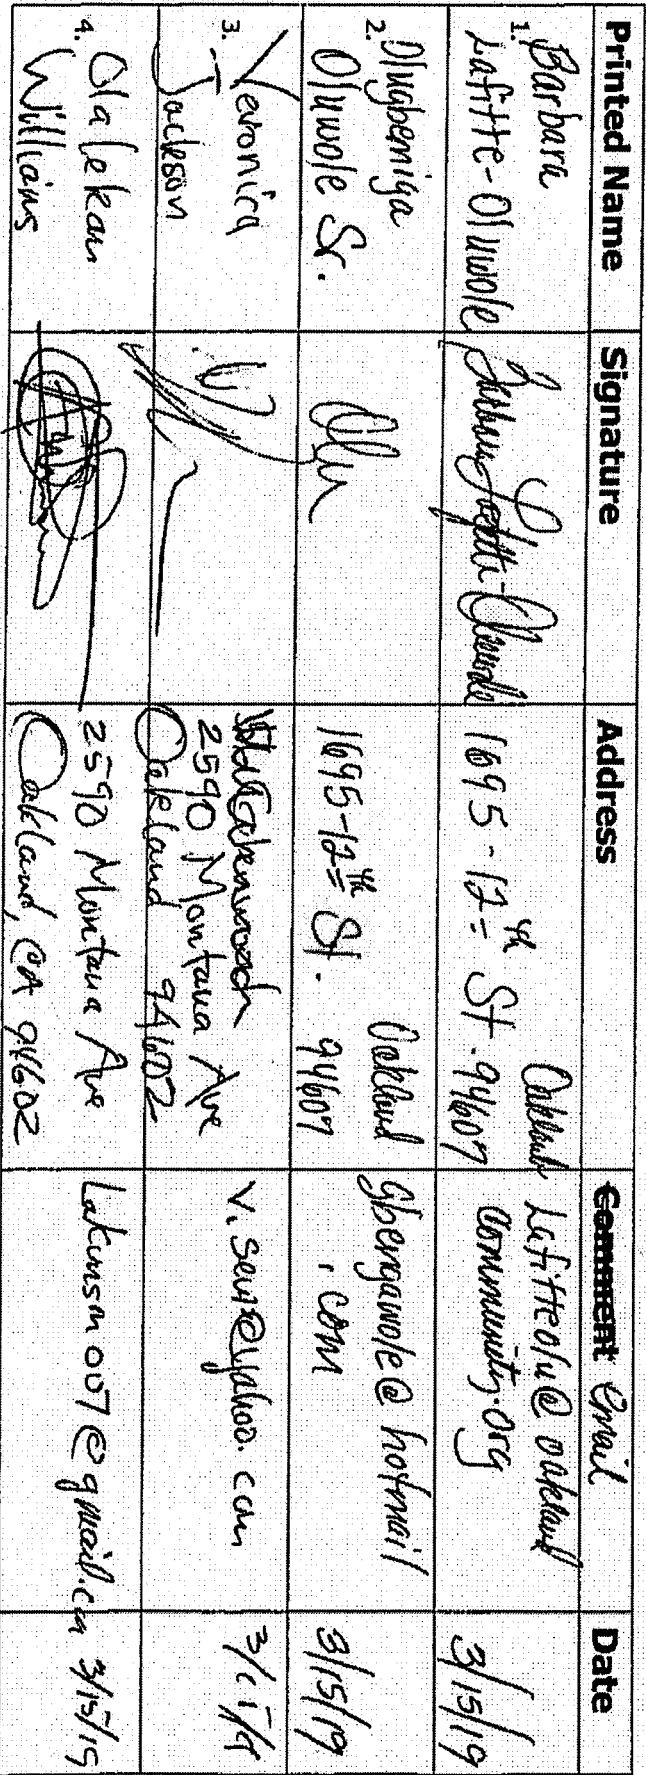 Printed Name Signature Address Comment Email Date
1. Barbara
Lafitte-Oluwole
1695-12th St. 94607
Oakland
Lafitteolu@oakland
community.org
3/15/19
2. Olugbemiga
Oluwole Sr.
1695-12th St.
Oakland
94607
Gbengawole@hotmail
.com
3/15/19
3. Veronica
Jackson
2590 Montana Ave
Oakland 94602
4. Olalekan
Williams
2590 Montana Ave
Oakland, CA 94602
3/15/19